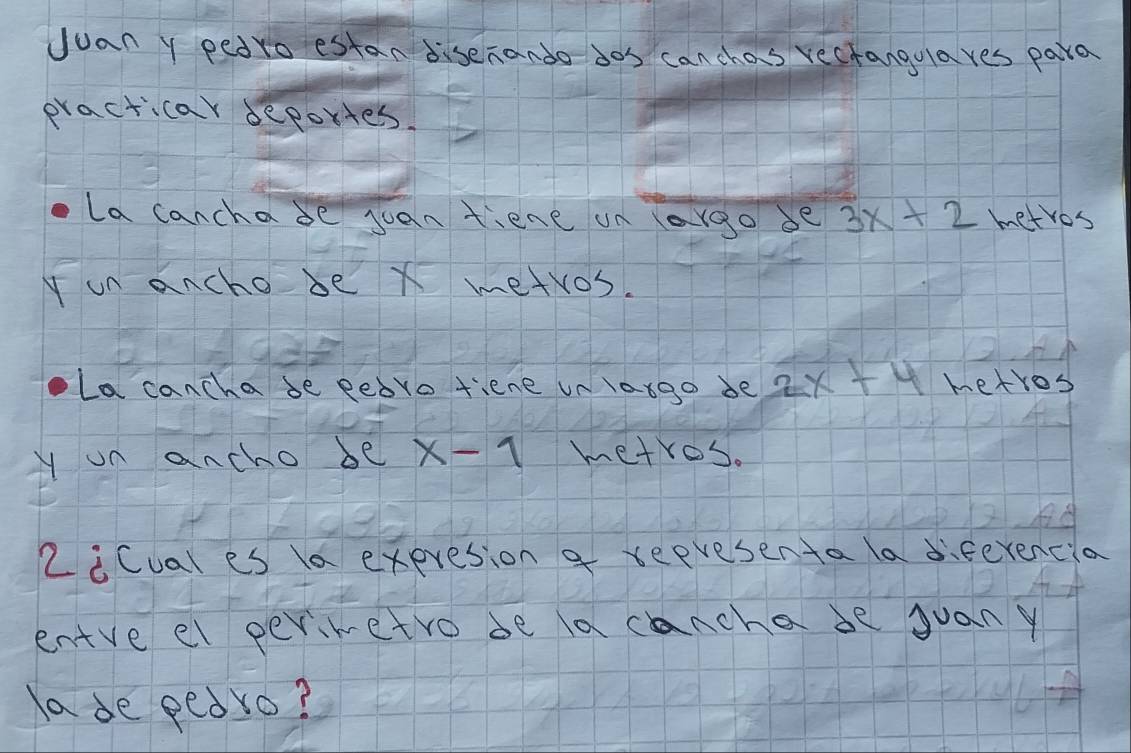 Juan y pedro estan diseñando dos canchas rectangulares para
practicar deportes.
• La cancha de juan tiene un largo de 3x + 2 metros
y un ancho de x metros.
• La cancha de pedro tiene un largo de 2x + 4 metros
y un ancho de x - 1 metros.
2 ¿Cual es la expresion q representa la diferencia
entre el perimetro de la cancha de juan y
la de pedro?